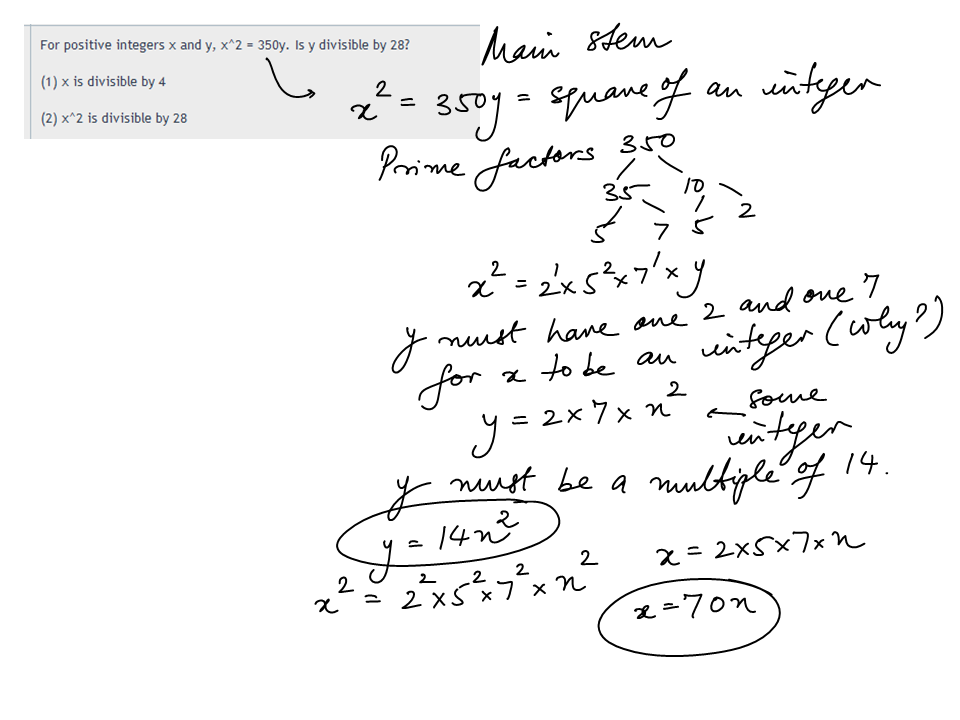 For positive integers x and y, x^2 = 350y. Is y divisible by 28?
(1) x is divisible by 4
(2) x^2 is divisible by 28
Main stem
x² = 350y = square of an integer
Prime factors 350
35 10
5 7 5 2
x² = 2¹ x 5² x 7¹ x y
y must have one 2 and one 7
for x to be an integer (why?)
y = 2 x 7 x n² ← some
integer
y must be a multiple of 14.
y = 14n²
x = 2x5x7xn
x² = 2² x 5² x 7² x n²
x = 70n